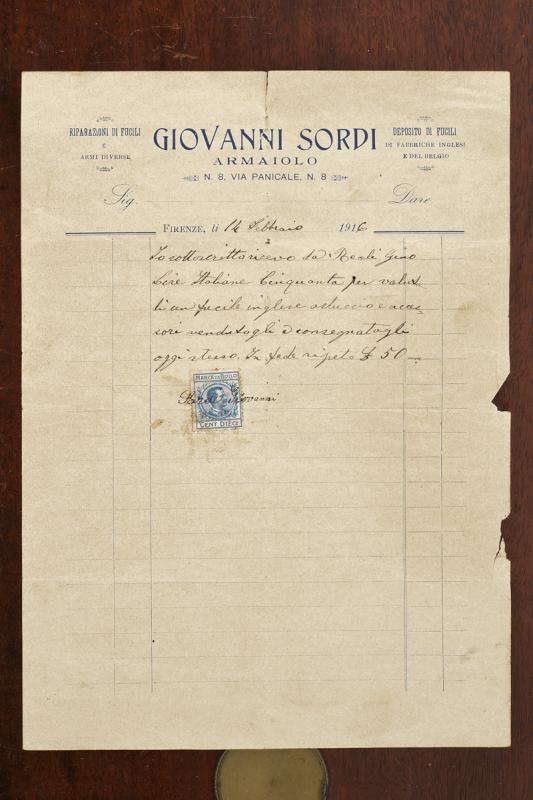 RIPARAZIONI DI FUCILI
E
ARMI DIVERSE
GIOVANNI SORDI
ARMAIOLO
N. 8, VIA PANICALE, N. 8
DEPOSITO DI FUCILI
DI FABBRICHE INGLESI
E DEL BELGIO
Sig.
Dare
FIRENZE, li 14 Febbraio 1916
Io sottoscritto ricevo da Reali Gino
Lire Italiane Cinquanta per valuta
di un fucile inglese astuccio e acces-
sori vendutogli e consegnatogli
oggi stesso. In fede ripeto £ 50
MARCA DA BOLLO
Sordi Giovanni
CENT. DIECI